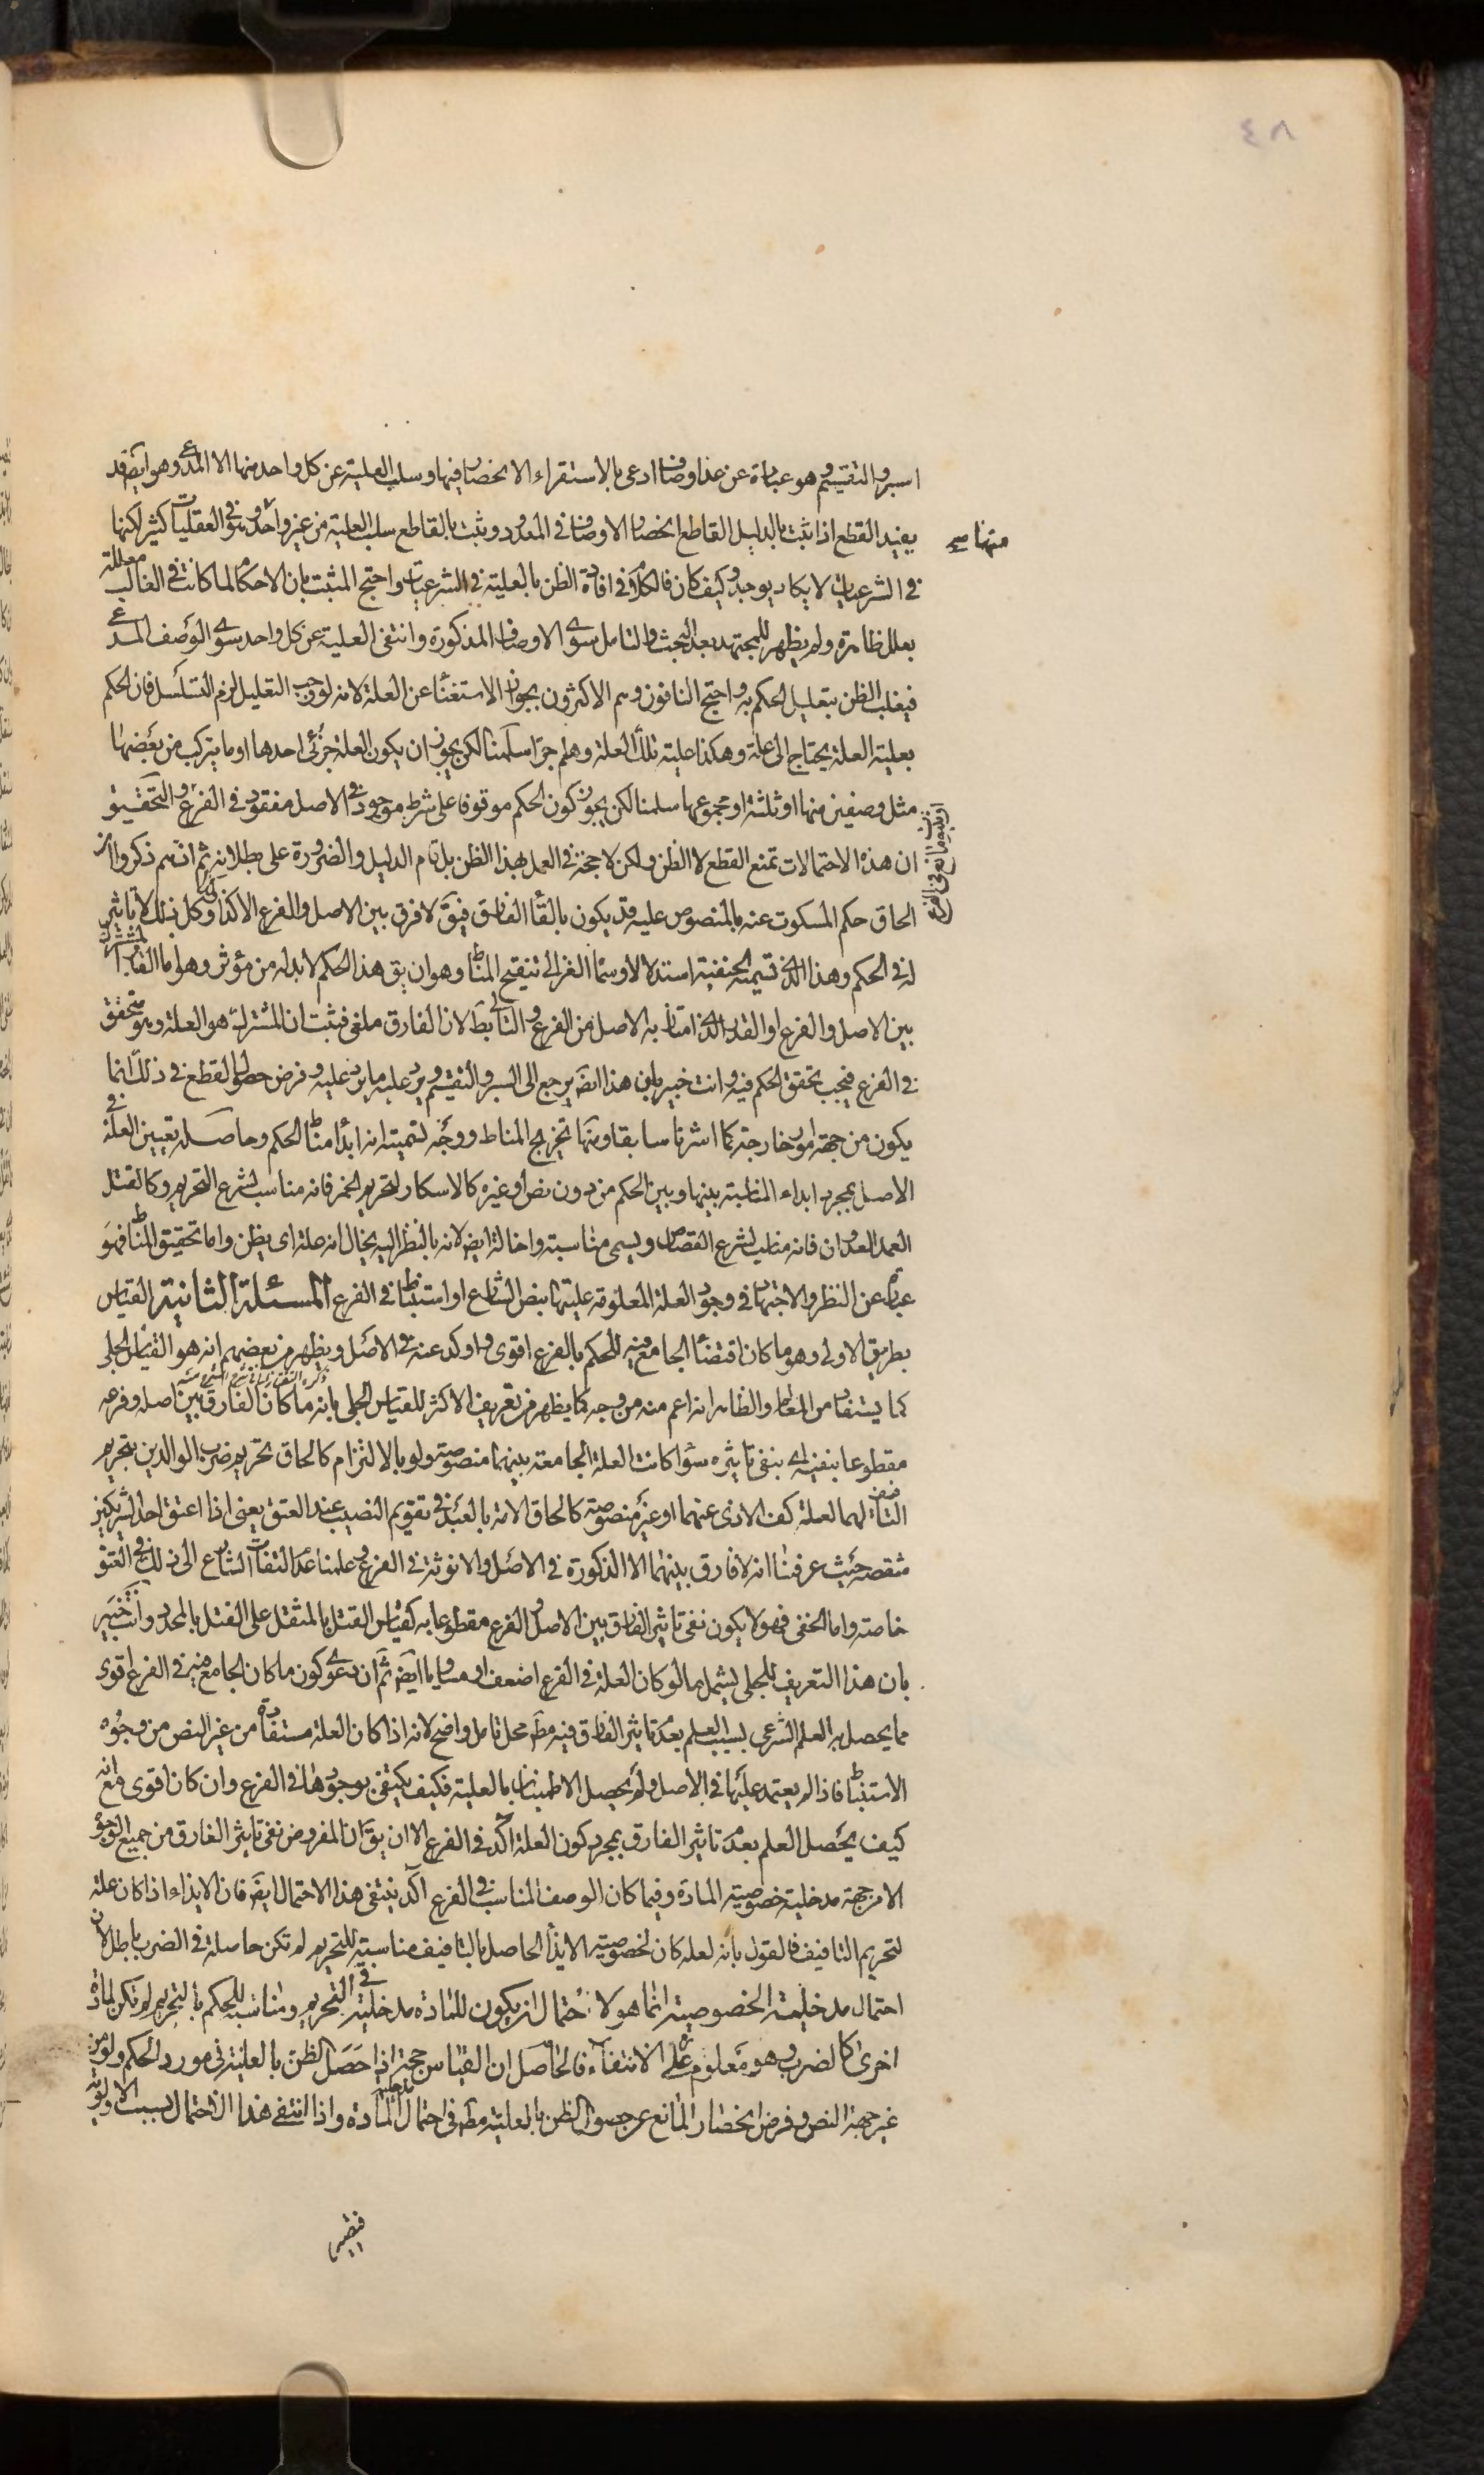 ٤٨
اسبر والتقسيم وهو عبارة عن عد اوصاف ادعى بالاستقراء الانحصار فيها وسلب العلية عن كل واحد منها الا المدعى وهو ايضا قد
منها صح
يفيد القطع اذا ثبت بالدليل القاطع انحصار الاوصاف فى المعدود وثبت بالقاطع سلب العلية من غير واحد وهو فى العقليات كثير لكنها
فى الشرعيات لا يكاد يوجد وكيف كان فالكلام فى افادة الظن بالعلية فى الشرعيات واحتج المثبت بان الاحكام لما كانت فى الغالب معللة
بعلل ظاهرة ولم يظهر للمجتهد بعد البحث والتامل سوى الاوصاف المذكورة وانتفى العلية عن كل واحد سوى الوصف المدعى
فيغلب الظن بتعليل الحكم به واحتج النافون وهم الاكثرون بجواز الاستغناء عن العلة لانه لو وجب التعليل لزم التسلسل فان الحكم
بعلية العلة يحتاج الى علة وهكذا علية تلك العلة وهلم جرا سلمنا لكن يجوز ان يكون العلة جزئى احدها او ما يتركب من بعضها
مثل وصفين منها او ثلثة او مجموعها سلمنا لكن يجوز كون الحكم موقوفا على شرط موجود فى الاصل مفقود فى الفرع والتحقيق
ان هذه الاحتمالات تمنع القطع لا الظن ولكن لا حجة فى العمل بهذا الظن بل قام الدليل والضرورة على بطلانه ثم انهم ذكروا ان
الحاق حكم المسكوت عنه بالمنصوص عليه قد يكون بالقاء الفارق فيق لا فرق بين الاصل والفرع الا كذا وكذا وكل ذلك لا تاثير
له فى الحكم وهذا الذى تسميه الحنفية استدلالا وسماه الغزالى تنقيح المناط وهو ان يق هذا الحكم لا بد له من مؤثر وهو اما القدر المشترك
بين الاصل والفرع او القدر الذى امتاز به الاصل من الفرع والثانى بط لان الفارق ملغى فثبت ان المشترك هو العلة وهو متحقق
فى الفرع فيجب تحقق الحكم فيه وانت خبير بان هذا ايضا يرجع الى السبر والتقسيم ويرد عليه ما يرد عليه وفرض حصول القطع فى ذلك انما
يكون من جهة امور خارجة كما اشرنا سابقا ومنها تخريج المناط ووجه تسميته انه ابداء مناط الحكم وحاصله تعيين العلة فى
الاصل بمجرد ابداء المناسبة بينها وبين الحكم من دون نص او غيره كالاسكار لتحريم الخمر فانه مناسب لشرع التحريم وكالقتل
العمد العدوان فانه مناسب لشرع القصاص ويسمى مناسبة واخالة ايض لانه بالنظر اليه يخال انه علة اى يظن واما تحقيق المناط فهو
عبارة عن النظر والاجتهاد فى وجود العلة المعلومة عليتها بنص الشارع او استنباط فى الفرع المسئلة الثانية القياس
بطريق الاولى وهو ما كان اقتضاء الجامع فيه للحكم بالفرع اقوى واوكد عنه فى الاصل ويظهر من بعضهم انه هو القياس الجلى
كما يستفاد من المعالم والظاهر انه اعم منه من وجه كما يظهر من تعريف الاكثر للقياس الجلى بانه ما كان الفارق بين اصله وفرعه
مقطوعا بنفيه اى بنفى تاثيره سواء كانت العلة الجامعة بينهما منصوصة ولو بالالتزام كالحاق تحريم ضرب الوالدين بتحريم
التافيف لهما لعلة كف الاذى عنهما او غير منصوصة كالحاق الامة بالعبد فى تقويم النصيب عند العتق يعنى اذا اعتق احد الشريكين
شقصه حيث عرفنا انه لا فارق بينهما الا الذكورة فى الاصل والانوثة فى الفرع وعلمنا عدم التفات الشارع الى ذلك فى العتق
خاصة واما الخفى فهو لا يكون نفى تاثير الفارق بين الاصل والفرع مقطوعا به كقياس القتل بالمثقل على القتل بالمحدد وانت خبير
بان هذا التعريف للجلى يشمل ما لو كان العلة فى الفرع اضعف او مساويا ايض ثم ان دعوى كون ما كان الجامع فيه فى الفرع اقوى
مما يحصل به العلم الشرعى بسبب العلم بعدم تاثير الفارق فيه مط محل تامل واضح لانه اذا كان العلة مستفادة من غير النص من وجوه
الاستنباط فاذا لم يعتمد عليها فى الاصل ولم يحصل الاطمينان بالعلية فكيف يكتفى بوجودها فى الفرع وان كان اقوى مع انه
كيف يحصل العلم بعدم تاثير الفارق بمجرد كون العلة آكد فى الفرع الا ان يق ان المفروض نفى تاثير الفارق من جميع الوجوه
الا من جهة مدخلية خصوصية المادة وفيما كان الوصف المناسب فى الفرع آكد ينتفى هذا الاحتمال ايض فان الايذاء اذا كان علة
لتحريم التافيف فالقول بانه لعله كان لخصوصية الايذاء الحاصل بالتافيف مناسبة للتحريم لم تكن حاصلة فى الضرب باطل لان
احتمال مدخلية الخصوصية انما هو لاحتمال ان يكون للمادة مدخلية فى التحريم ومناسبة للحكم بالتحريم لم تكن لمادة
اخرى كالضرب وهو معلوم الانتفاء فالحاصل ان القياس حجة اذا حصل الظن بالعلية فى مورد الحكم ولو من
غير جهة النص وفرض انحصار المانع عن حصول الظن بالعلية مط فى احتمال مدخلية المادة واذا انتفى هذا الاحتمال بسبب الاولوية